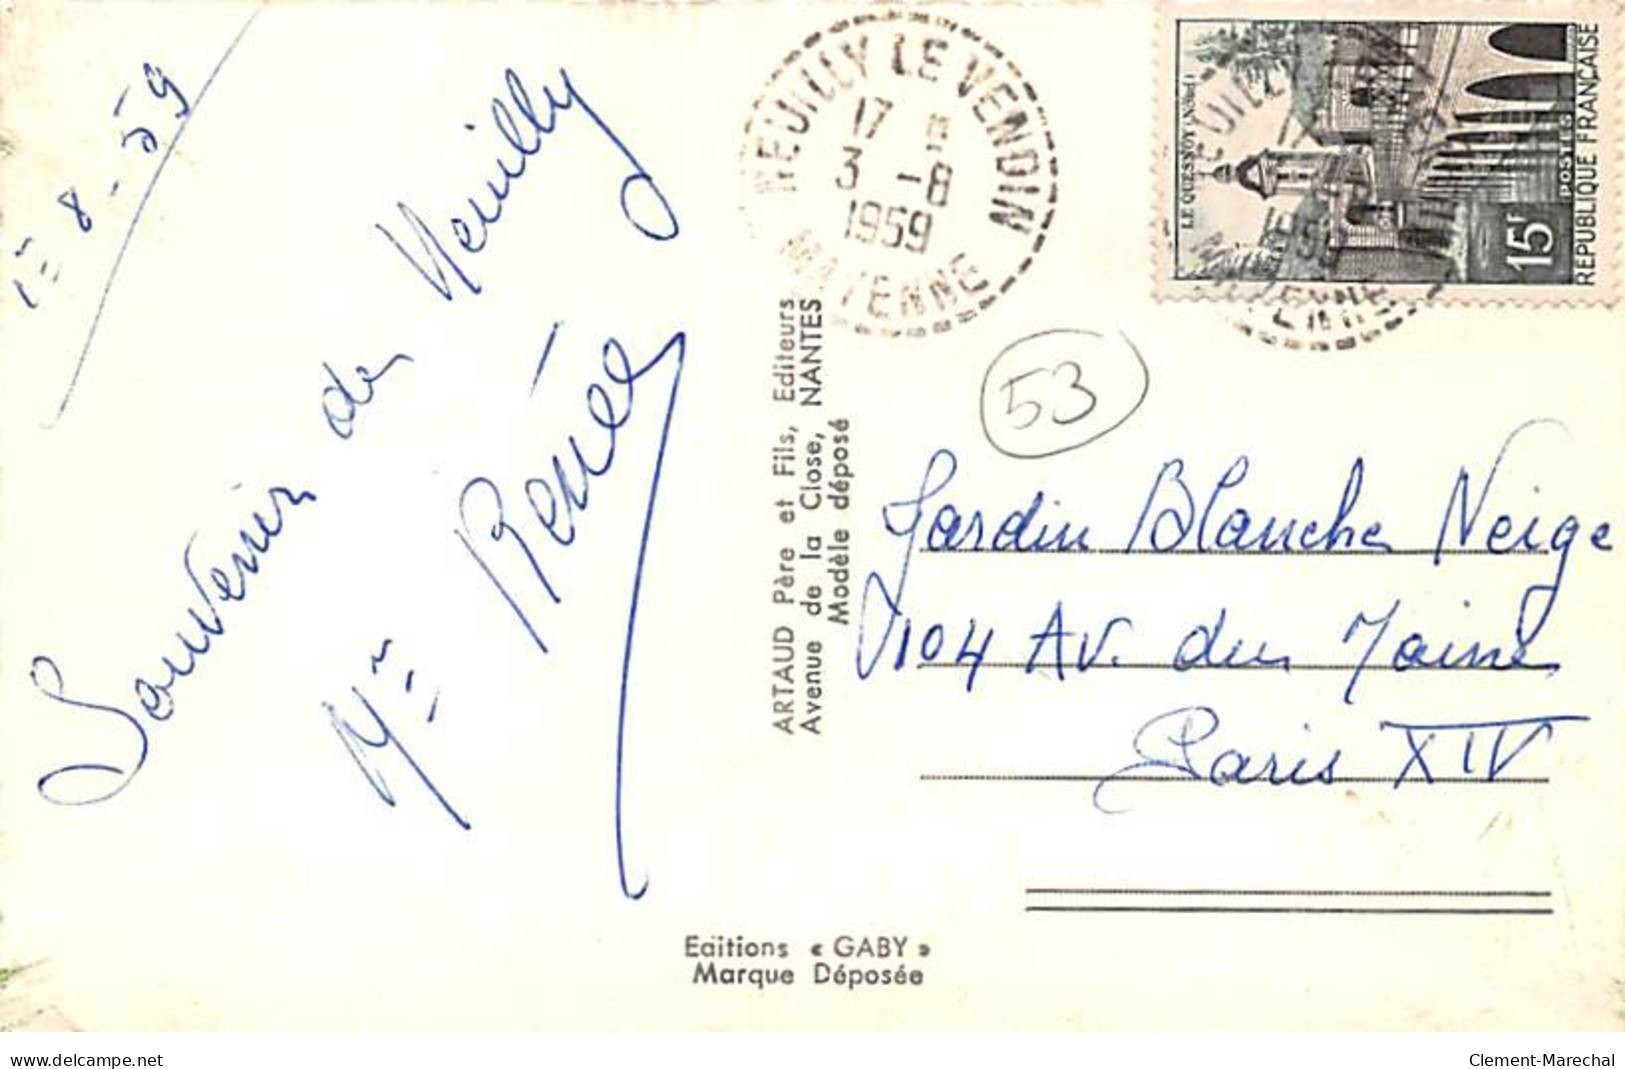 1er 8-59
Souvenir de Neuilly
Mme Renée
NEUILLY LE VENDIN
17
3 -8
1959
MAYENNE
LE QUESNOY (NORD)
15F
POSTES
REPUBLIQUE FRANÇAISE
53
ARTAUD Père et Fils, Editeurs
Avenue de la Close, NANTES
Modèle déposé
Jardin Blanche Neige
104 Av. du Maine
Paris XIV
Editions « GABY »
Marque Déposée
www.delcampe.net
Clement-Marechal